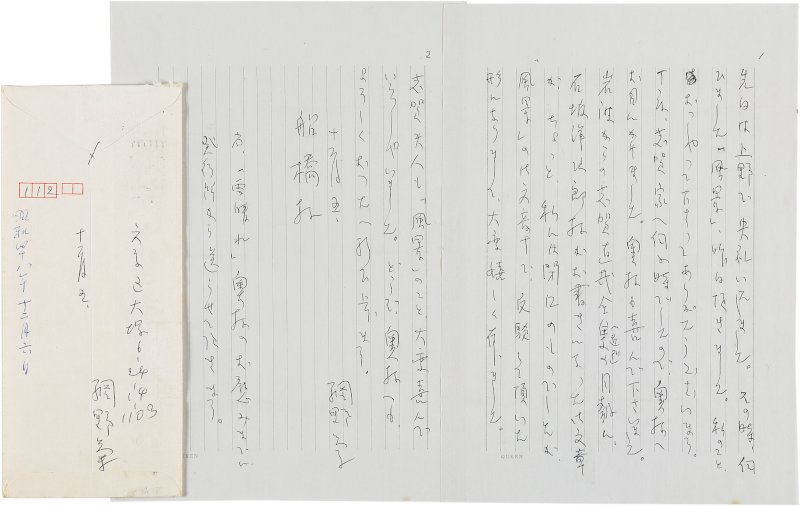 1
先日は上野で失礼いたしました。その時、伺
ひました「風景」、昨日頂きました。私のこと、
おっしゃって下さってありがとうございます。
丁度、志賀家へ伺う時でしたので、奥様へ
お目にかけました。奥様も喜んで下さいました。
岩波からの志賀直哉全集月報に
石坂洋次郎様がお書きになった御文章
が、ちょっと、私には閉口のものでしたが、
「風景」の御文章で、応援して頂いた
形になりまして、大変嬉しく存じました。
QUEEN
2
志賀夫人も「風景」のこと大変喜んで
いらっしゃいました。どうぞ、奥様へも
よろしくおつたへ下さいませ。
十二月五日
網野菊
船橋様
尚、「雪晴れ」奥様のお慰みまでに
発行所から送らせて頂きます。
文京区大塚6-24-14-1103
網野菊
十二月五日
112
昭和四十八年十二月六日